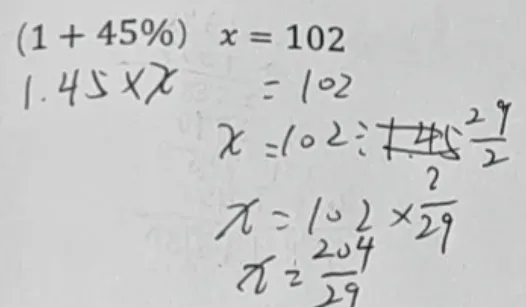 (1 + 45%) x = 102
1.45 × x = 102
x = 102 ÷ 29/2
x = 102 × 2/29
x = 204/29